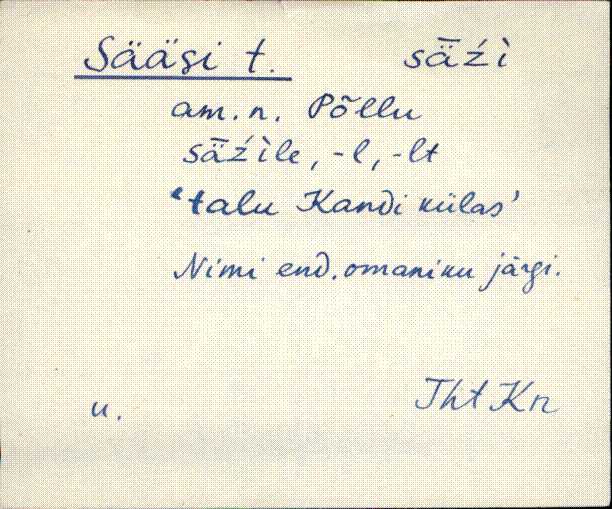 Sääsi t. sǟźì
am. n. Põllu
sǟźìle, -l, -lt
‘talu Kandi külas’
Nimi end. omaniku järgi.
u. Tht Kn